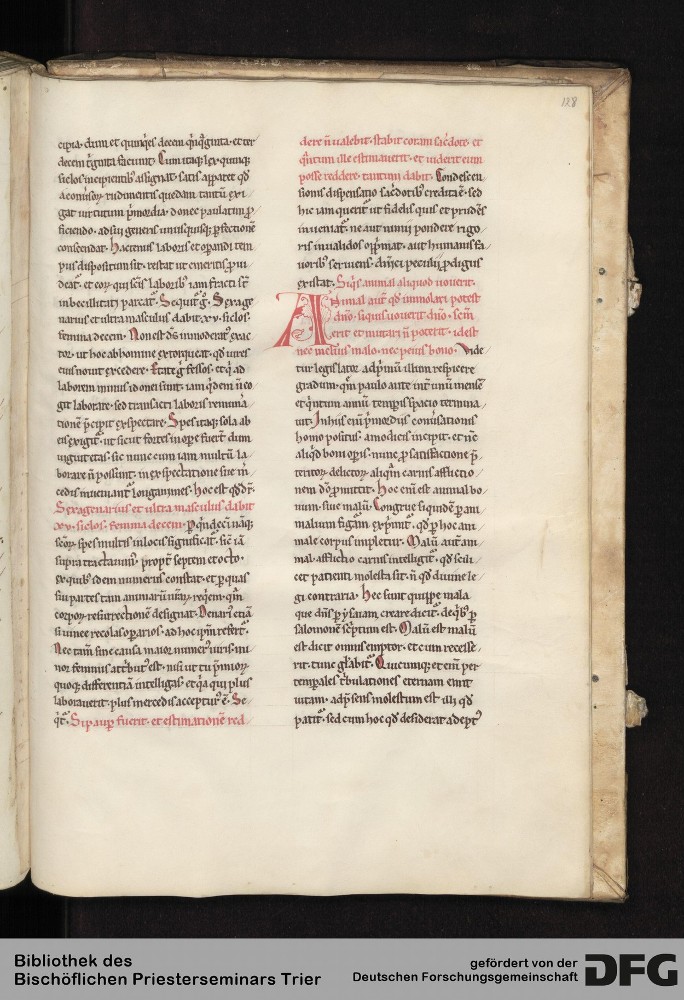 128
cipia. dum et quinqies decem q̄nq̄ginta. et ter
decem t̄ginta faciunt. Cum itaq; lex quinq;
siclos incipientibꝰ assignat. satis apparet qd
a comisoꝝ rudimentis quedam tantū exi
gat uirtutum p̄mordia. donec paulatim ꝓ
ficiendo. ad sui generis unusquisq; ꝑfectionē
conscendat. Hactenus laboris et opandi tem
pus dispositum sit. restat ut emeritis ꝓui
deat᷑. et eoꝝ qui scīs laboribꝰ iam fracti st̄
inbecillitati parcat᷑. Sequit᷑ g̊. Sexage
narius et ultra masculus dabit. xv. siclos.
femina decem. Non est ds̄ inmoderatꝰ exac
tor. ut hoc ab homine extorqueat. qd uires
eius nouit excedere. Etate g̊ fessos. et q̄ ad
laborem minus idonei sunt. iam q̄dem n̄ co
git laborare. sed transacti laboris remune
rationē p̄cipit exspectare. Spes itaq; sola ab
eis exigit᷑. ut sicut fortes in oꝑe fuer̄t dum
uiguit etas. sic nunc cum iam multū la
borare n̄ possunt. in exspectatione sue m̄
cedis inueniant᷑ longanimes. Hoc est qd dr̄.
Sexagenarius et ultra masculus dabit
xv. siclos. femina decem. ꝑ q̄ndecī nāq;
scōꝝ spes multis in locis significat᷑. sic̄ iā
supra tractatum᷑. propt̄ septem et octo.
ex quibꝰ idem numerus constat. et ꝑ quas
sui partes tam animarū n̄raꝝ reqem. q̄m
corpoꝝ resurrectionē designat. Denariꝰ etiā
si uinee recolas oꝑarios. ad hoc ip̄m refert᷑.
Nec tam̄ sine causa maior numerꝰ uiris. mi
nor feminis att̄butꝰ est. nisi ut tu p̄mioꝝ
quoq; differentiā intelligas. et q̄a qui plus
laborauerit. plus mercedis acceptur᷑ ē. Se
q̄t᷑. Si paup fuerit. et estimationē red
dere n̄ ualebit. stabit coram sac̄dote. et
q̄ntum ille estimauerit. et uiderit eum
posse reddere. tantum dabit. Condescen
sionis dispensatio sac̄dotibꝰ credita ē. sed
hic iam querit᷑ ut fidelis quis et prudēs
inueniat᷑. ne aut nimii pondere rigo
ris inualidos opp̄mat. aut humanis fa
uoribꝰ seruiens. dn̄ici peculii ꝓdigus
existat. Siq̄s animal aliquod uouerit.
Animal aut̄ qd inmolari potest
dn̄o. siquis uouerit dn̄o. scm̄
erit et mutari n̄ poterit. idest
nec melius malo. nec peius bono. Vide
tur legislator ad p̄mū illum respicere
gradum. quē paulo ante int̄ unū mensē
et q̄ntum annū temporis spacio termina
uit. In huius eni p̄mordiis conuersationis
homo positus. a modicis incipit. et n̄c
aliqd boni oꝑis. nunc ꝓ satisfactione p̄
teritoꝝ delictoꝝ aliq̄m carnis afflictio
nem dō ꝓmittit. Hoc eni est animal bo
num. siue malū. Congrue siquidē ꝑ ani
malium figurā exp̄mit᷑. qd ꝑ hoc ani
male corpus impletur. Malū aut̄ ani
mal. afflictio carnis intelligit᷑. qd scili
cet patienti molesta sit. n̄ qd diuine le
gi contraria. Hec sunt quippe mala
que dn̄s ꝑ ysaiam creare dicit᷑. de qbꝰ ꝑ
salomonē sc̄ptum est. Malū est malū
est dicit omnis emptor. et cum recesse
rit. tunc gl̄abit᷑. Quicumq; et eni per
temporales t̄bulationes eternam emit
uitam. ad p̄sens molestum est illi qd
patit᷑. sed cum hoc qd desiderat adept᷑
Bibliothek des
Bischöflichen Priesterseminars Trier
gefördert von der
Deutschen Forschungsgemeinschaft
DFG